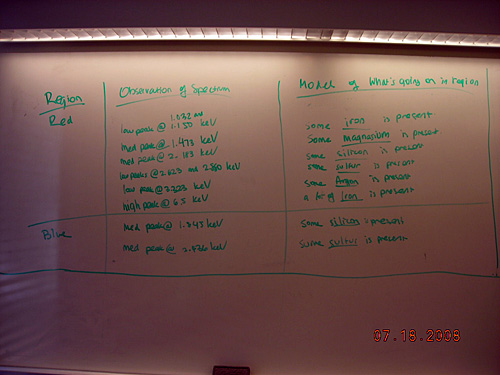 Region
Observation of Spectrum
Model of What's going on in region
Red
1.032 and
low peak @ 1.150 keV
some iron is present
med peak @ 1.473 keV
Some magnesium is present
med peak @ 2.183 keV
some silicon is present
low peaks @ 2.623 and 2.880 keV
some sulfur is present
low peak @ 3.323 keV
some Argon is present
high peak @ 6.5 keV
a lot of Iron is present
Blue
med peak @ 1.843 keV
some silicon is present
med peak @ keV
some sulfur is present
07.18.2008